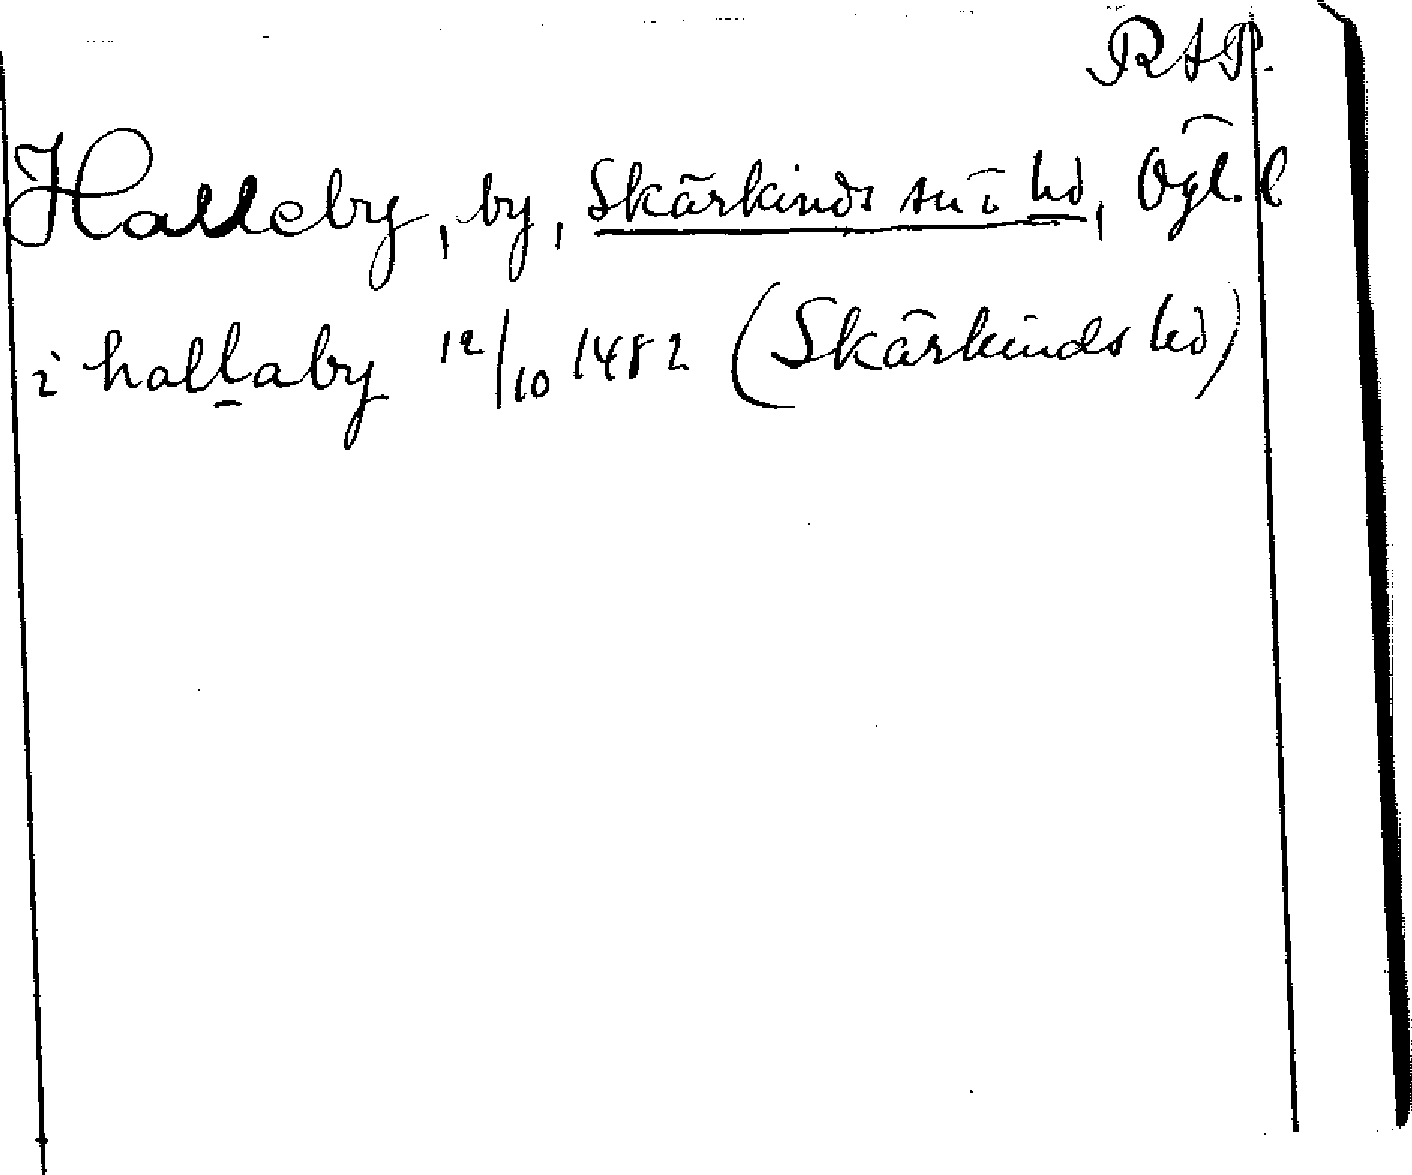 RAP.
Halleby, by, Skärkinds sn i hd, Ögl. l
i hallaby 12/10 1482 (Skärkinds hd)